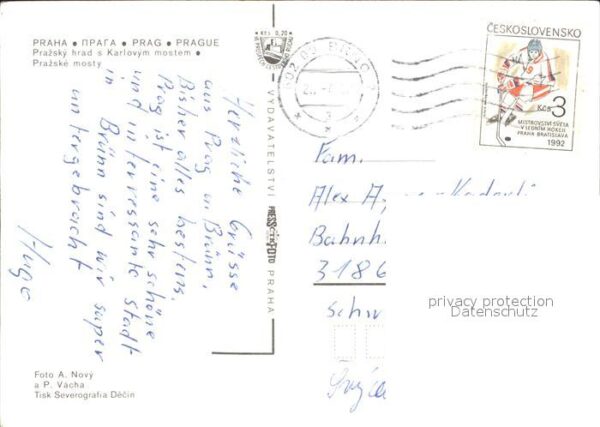 PRAHA • ПРАГА • PRAG • PRAGUE
Pražský hrad s Karlovým mostem •
Pražské mosty
Herzliche Grüsse
aus Prag u Brünn.
Bisher alles bestens.
Prag ist eine sehr schöne
und interressante Stadt
in Brünn sind wir super
untergebracht
Hugo
Foto A. Nový
a P. Vácha
Tisk Severografia Děčín
Kčs 0,20
VYDAVATELSTVÍ PRESSFOTO PRAHA
ČTK
BRNO
ČESKOSLOVENSKO
9
Kčs 3
MISTROVSTVÍ SVĚTA
V LEDNÍM HOKEJI
PRAHA BRATISLAVA
1992
Fam.
Alex
Bahnh
3186
Schw
privacy protection
Datenschutz